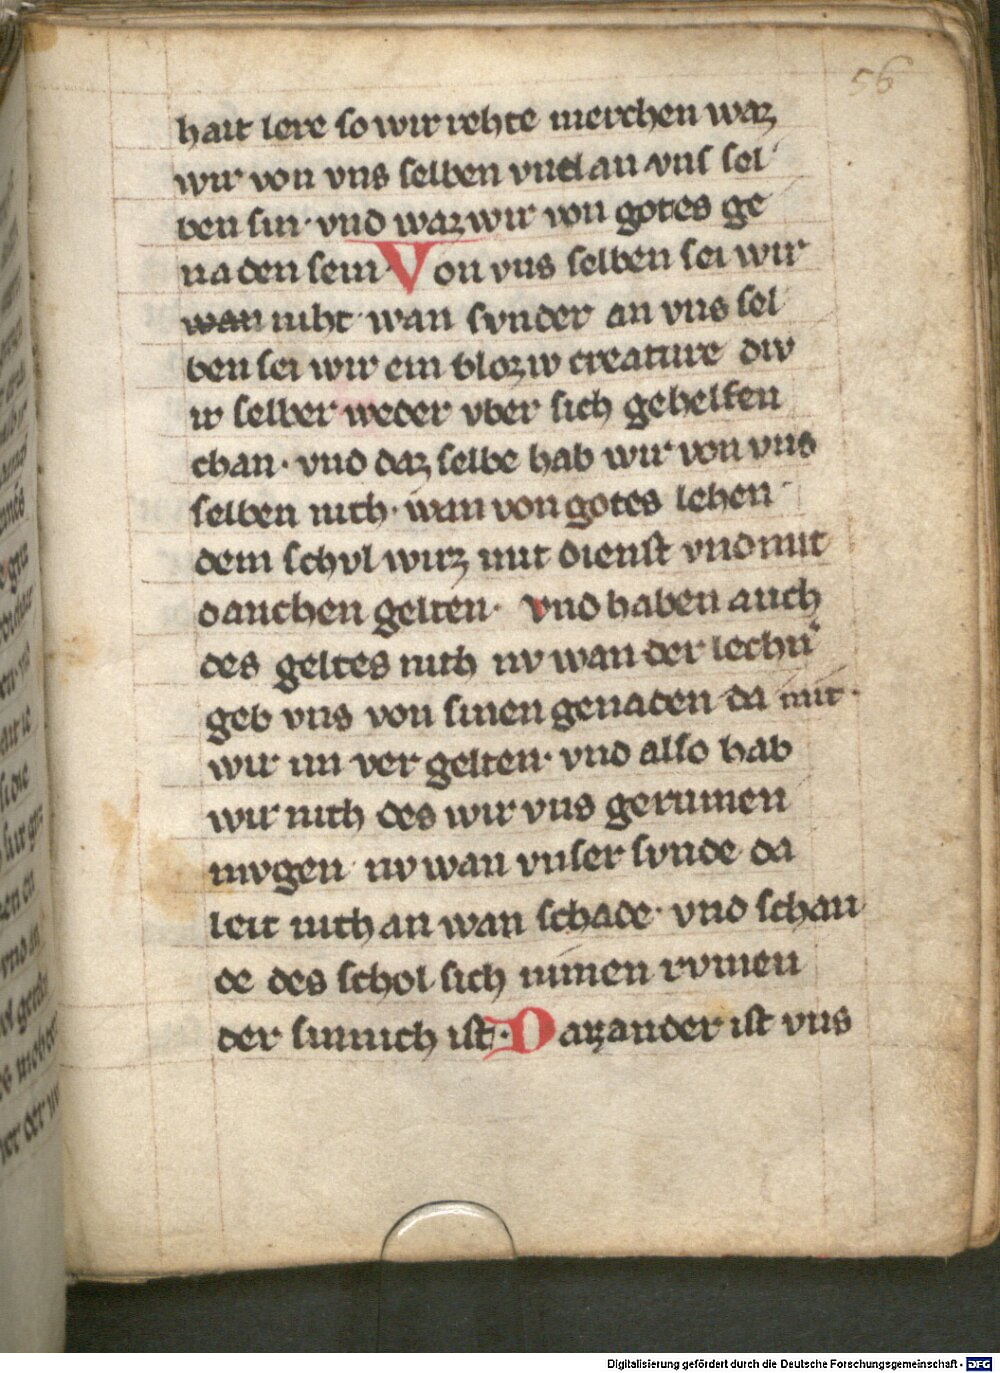 56
hait lere so wir rehte merchen waz
wir von vns selben vnd an vns sel
ben sin· vnd waz wir von gotes ge
naden sein Von vns selben sei wir
wan niht· wan svnder an vns sel
ben sei wir ein bloziv creature div
ir selber weder vber sich gehelfen
chan· vnd daz selbe hab wir von vns
selben nith· wan von gotes lehen
dem schvl wirz mit dienst vnd mit
danchen gelten· vnd haben auch
des geltes nith nv wan der
geb vns von sinen genaden da mit·
wir im ver gelten· vnd also hab
wir nith des wir vns gerumen
mvgen nv wan vnser svnde da
leit nith an wan schade· vnd schan
de des schol sich nimen rvmen
der sinnich ist· Daz ander ist vns
Digitalisierung gefördert durch die Deutsche Forschungsgemeinschaft - DFG